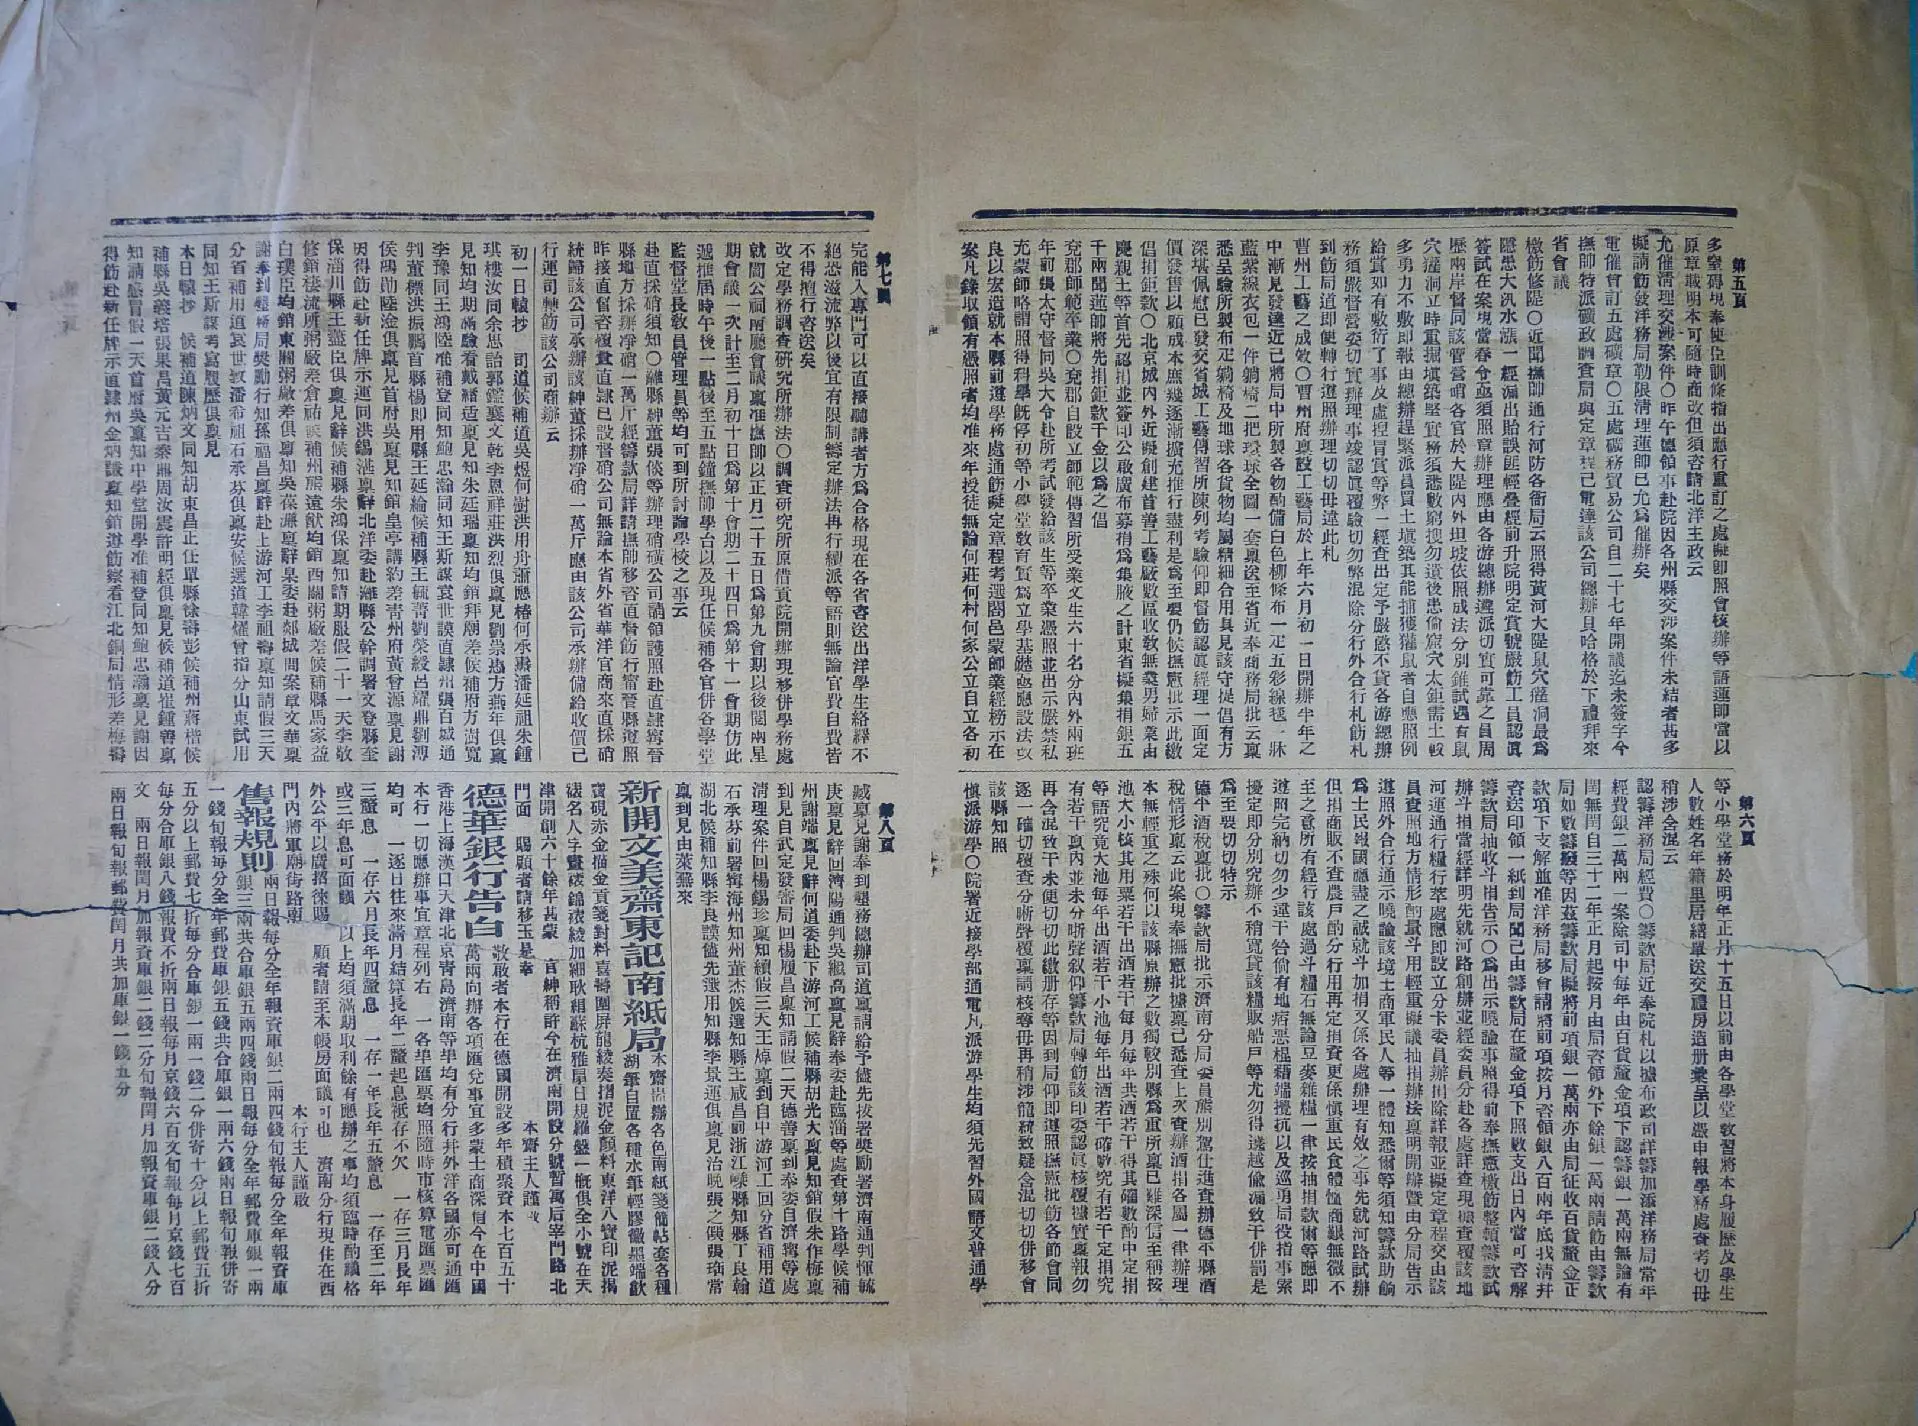 第五頁
多窒礙現奉使臣訓條指出應行重訂之處擬卽照會核辦等語蓮帥當以
原章載明本可隨時商改但須咨請北洋主政云
允催清理交涉案件〇昨午德領事赴院因各州縣交涉案件未結者甚多
擬請飭發洋務局勒限清理蓮帥已允爲催辦矣
電催會訂五處礦章〇五處礦務貿易公司自二十七年開議迄未簽字今
撫帥特派礦政調查局與定章程已電達該公司總辦貝哈格於下禮拜來
省會議
檄飭修隄〇近聞撫帥通行河防各衙局云照得黃河大隄鼠穴獾洞最爲
隱患大汛水漲一經漏出貽誤匪輕疊經前升院明定賞號嚴飭工員認眞
簽試在案現當春令亟須照章辦理應由各游總辦遴派切實可靠之員周
歷兩岸督同該管營哨各官於大隄內外坦坡依照成法分別錐試遇有鼠
穴獾洞立時重掘塡築堅實務須悉數窮搜勿遺後患偷窺穴太鉅需土較
多勇力不敷卽報由總辦趕緊派員買土塡築其能捕獲獾鼠者自應照例
給賞如有敷衍了事及虛捏冒賞等弊一經查出定予嚴懲不貸各游總辦
務須嚴督營委切實辦理事竣認眞覆驗切勿弊混除分行外合行札飭札
到飭局道卽便轉行遵照辦理切切毋違此札
曹州工藝之成效〇曹州府稟設工藝局於上年六月初一日開辦半年之
中漸見發達近已將局中所製各物酌備白色柳條布一疋五彩線毯一牀
藍紫線衣包一件躺椅二把環球全圖一套稟送至省近奉商務局批云稟
悉呈驗所製布疋躺椅及地球各貨物均屬精細合用具見該守提倡有方
深堪佩慰已發交省城工藝傳習所陳列考驗仰卽督飭認眞經理一面定
價發售以顧成本庶幾逐漸擴充推行盡利是爲至要仍候撫憲批示此繳
倡捐鉅款〇北京城內外近擬創建首善工藝廠數區收敎無業男婦業由
慶親王等首先認捐並簽印公啟廣布募捐爲集腋之計東省擬集捐銀五
千兩聞蓮帥將先捐鉅款千金以爲之倡
兗郡師範卒業〇兗郡自設立師範傳習所受業文生六十名分內外兩班
年前張太守督同吳大令赴所考試發給該生等卒業憑照並出示嚴禁私
充蒙師略謂照得科學旣停初等小學堂敎育實爲立學基礎亟應設法改
良以宏造就本縣前遵學務處通飭擬定章程考選閤邑蒙師業經榜示在
案凡錄取領有憑照者均准來年授徒無論何莊何村何家公立自立各初
第六頁
等小學堂務於明年正月十五日以前由各學堂敎習將本身履歷及學生
人數姓名年籍里居繕單送交禮房造册彙呈以憑申報學務處查考切毋
稍涉含混云
認籌洋務局經費〇籌款局近奉院札以據布政司詳籌加添洋務局常年
經費銀二萬兩一案除司中每年由百貨釐金項下認籌銀一萬兩無論有
閏無閏自三十二年正月起按月由局咨領外下餘銀一萬兩請飭由籌款
局如數籌撥等因茲籌款局擬將前項銀一萬兩亦由局征收百貨釐金正
款項下支解並准洋務局移會請將前項按月咨領銀八百兩年底找淸幷
咨送印領一紙到局聞已由籌款局在釐金項下照數支出日內當可咨解
籌款局抽收斗捐告示〇爲出示曉諭事照得前奉撫憲檄飭整頓籌款試
辦斗捐當經詳明先就河路創辦並經委員分赴各處詳查現據查覆該地
河運通行糧行萃處應卽設立分卡委員辦出除詳報並擬定章程交由該
員查照地方情形酌量斗用輕重擬議抽捐辦法稟明開辦曁由分局告示
遵照外合行通示曉諭該境士商軍民人等一體知悉爾等須知籌款助餉
爲士民報國應盡之誠就斗加捐又係各處辦理有效之事先就河路試辦
但捐商販不查農戶酌分行用再定捐資更係慎重民食體恤商艱無微不
至之意所有經行該處過斗糧石無論豆麥雜糧一律按抽捐款爾等應卽
遵照完納切勿少運干咎倘有地痞惡棍藉端攪抗以及巡勇局役指事索
擾定卽分別究辦不稍寬貸該糧販船戶等尤勿得繞越偸漏致干併罰是
爲至要切切特示
德平酒稅稟批〇籌款局批示濟南分局委員熊別駕仕進查辦德平縣酒
稅情形稟云此案現奉撫憲批據稟已悉查上次查辦酒捐各屬一律辦理
本無輕重之殊何以該縣原辦之數獨較別縣爲重所稟已難深信至稱按
池大小核其用粟若干出酒若干每月每年共酒若干得其確數酌中定捐
等語究竟大池每年出酒若干小池每年出酒若干確數究有若干定捐究
有若干稟內並未分晰聲叙仰籌款局轉飭該印委認眞核覆據實稟報勿
再含混致干未便切切此繳册存等因到局仰卽遵照撫憲批飭各節會同
逐一確切覆查分晰聲覆稟請核奪毋再稍涉籠統致疑含混切切併移會
該縣知照
愼派游學〇院署近接學部通電凡派游學生均須先習外國語文普通學
第七頁
完能入專門可以直接聽講者方爲合格現在各省咨送出洋學生絡繹不
絕恐滋流弊以後宜有限制籌定辦法再行續派等語則無論官費自費皆
不得擅行咨送矣
改定學務調查研究所辦法〇調查研究所原借貢院開辦現移併學務處
就間公祠兩廳會議稟准撫帥以正月二十五日爲第九會期以後間兩星
期會議一次計至二月初十日爲第十會期二十四日爲第十一會期仿此
遞推屆時午後一點鐘後至五點鐘撫帥學台以及現任候補各官併各學堂
監督堂長敎員管理員等均可到所討論學校之事云
赴直採硝須知〇濰縣紳董張倓等辦理硝磺公司請領護照赴直隸寗晉
縣地方採辦凈硝一萬斤經籌款局詳請撫帥移咨直督飭行寗晉縣遵照
昨接直督咨覆實直隸已設督硝公司無論本省外省華洋官商來直採硝
統歸該公司承辦該紳董採辦凈硝一萬斤應由該公司承辦備給收價已
行運司轉飭該公司商辦云
初一日轅抄　司道候補道吳煜何澍洪用舟蕭應椿何承燾潘延祖朱鍾
琪樓汝同余思詒郭鑑襄文乾李恩祥莊洪烈俱稟見劉崇惠方燕年俱稟
見知均期滿驗看戴緒适稟見知朱廷瑞稟知均銷拜廟差候補府方澍寬
李豫同王鴻陸准補登同知鮑忠瀚同知王斯謀袁世謨直隸州張百城通
判董標洪振鵬首縣楊卽用縣王延綸候補縣王毓菁劉榮綬呂耀鼎劉溥
侯鴻勛陸淦俱稟見首府吳稟見知銷皇亭講約差靑州府黃曾源稟見謝
因得飭赴新任牌示運同洪錫湛稟辭北洋委赴濰縣公幹調署文登縣奎
保淄川縣王藎臣俱稟見辭候補縣朱鴻保稟知請期服假二十一天李敬
修銷棲流所粥廠差倉祐候補州熊遠猷均銷西關粥廠差候補縣馬家益
白璞臣均銷東關粥廠差俱稟知吳葆濂稟辭臬委赴鄒城問案章文華稟
謝奉到墾務局獎勵行知孫福昌稟辭赴上游河工李祖壽稟知請假三天
分省補用道袁世敦潘希祖石承芬俱稟安候選道韓燿曾指分山東試用
同知王斯謀考寫履歷俱稟見
本日轅抄　候補道陳炳文同知胡東昌正任單縣徐壽彭候補州蔣楷候
補縣吳義培張果昌黃元吉秦鼎周汝霖許明經俱稟見候補道崔鍾善稟
知請感冒假一天首府吳稟知中學堂開學准補登同知鮑忠瀚稟見謝因
得飭赴新任牌示直隸州金炳議稟知銷遵飭察看江北銅局情形差梅壽
第八頁
臧稟見謝奉到墾務總辦司道稟請給予儘先拔署獎勵署濟南通判惲毓
庚稟見辭回濟陽通判吳繼高稟見辭奉委赴臨淄等處查第十路學候補
州謝端稟見辭何道委赴下游河工候補縣胡光大稟見知銷假朱作梅稟
到見自武定發審局回楊履昌稟知請假二天德善稟到奉委自濟寗等處
清理案件回楊錫珍稟知續假三天王焯稟到自中游河工回分省補用道
石承芬前署寗海州知州董杰候選知縣王咸昌前浙江嵊縣知縣丁良翰
湖北候補知縣李良謨儘先選用知縣李景運俱稟見治晚張之僕張瑋常
稟到見由萊蕪來
新開文美齋東記南紙局
本齋自辦各色南紙箋簡帖套各種
湖筆自置各種水筆輕膠徽墨端歙
寶硯赤金描金貢箋對料喜壽圍屏龍綾奏摺泥金顏料東洋八寶印泥揭
裱名人字畫裱錦裱綾加細耿絹蘇杭雅扇日規羅盤一概俱全小號在天
津開創六十餘年甚蒙　官紳稱許今在濟南開設分號暫寓后宰門路北
門面　賜顧者請移玉是幸　本齋主人謹啟
德華銀行告白
敬啟者本行在德國開設多年積聚資本七百五十
萬兩向辦各項匯兌事宜多蒙士商深信今在中國
香港上海漢口天津北京靑島濟南等埠均有分行幷外洋各國亦可通匯
本行一切應辦事宜章程列右　一各埠匯票均照隨時市核算電匯票匯
均可　一逐日往來滿月結算長年二釐起息祗存不欠　一存三月長年
三釐息　一存六月長年四釐息　一存一年長年五釐息　一存至二年
或三年息可面議　以上均須滿期取利餘有應辦之事均須臨時酌議格
外公平以廣招徠賜　顧者請至本帳房面議可也　濟南分行現住在西
門內將軍廟街路南　本行主人謹啟
售報規則
兩日報每分全年報資庫銀二兩四錢旬報每分全年報資庫
銀三兩共合庫銀五兩四錢兩日報每分全年郵費庫銀一兩
一錢旬報每分全年郵費庫銀五錢共合庫銀一兩六錢兩日報旬報併寄
五分以上郵費七折每分合庫銀一兩一錢二分併寄十分以上郵費五折
每分合庫銀八錢報費不折兩日報每月京錢六百文旬報每月京錢七百
文　兩日報閏月加報資庫銀二錢二分旬報閏月加報資庫銀二錢八分
兩日報旬報郵費閏月共加庫銀一錢五分